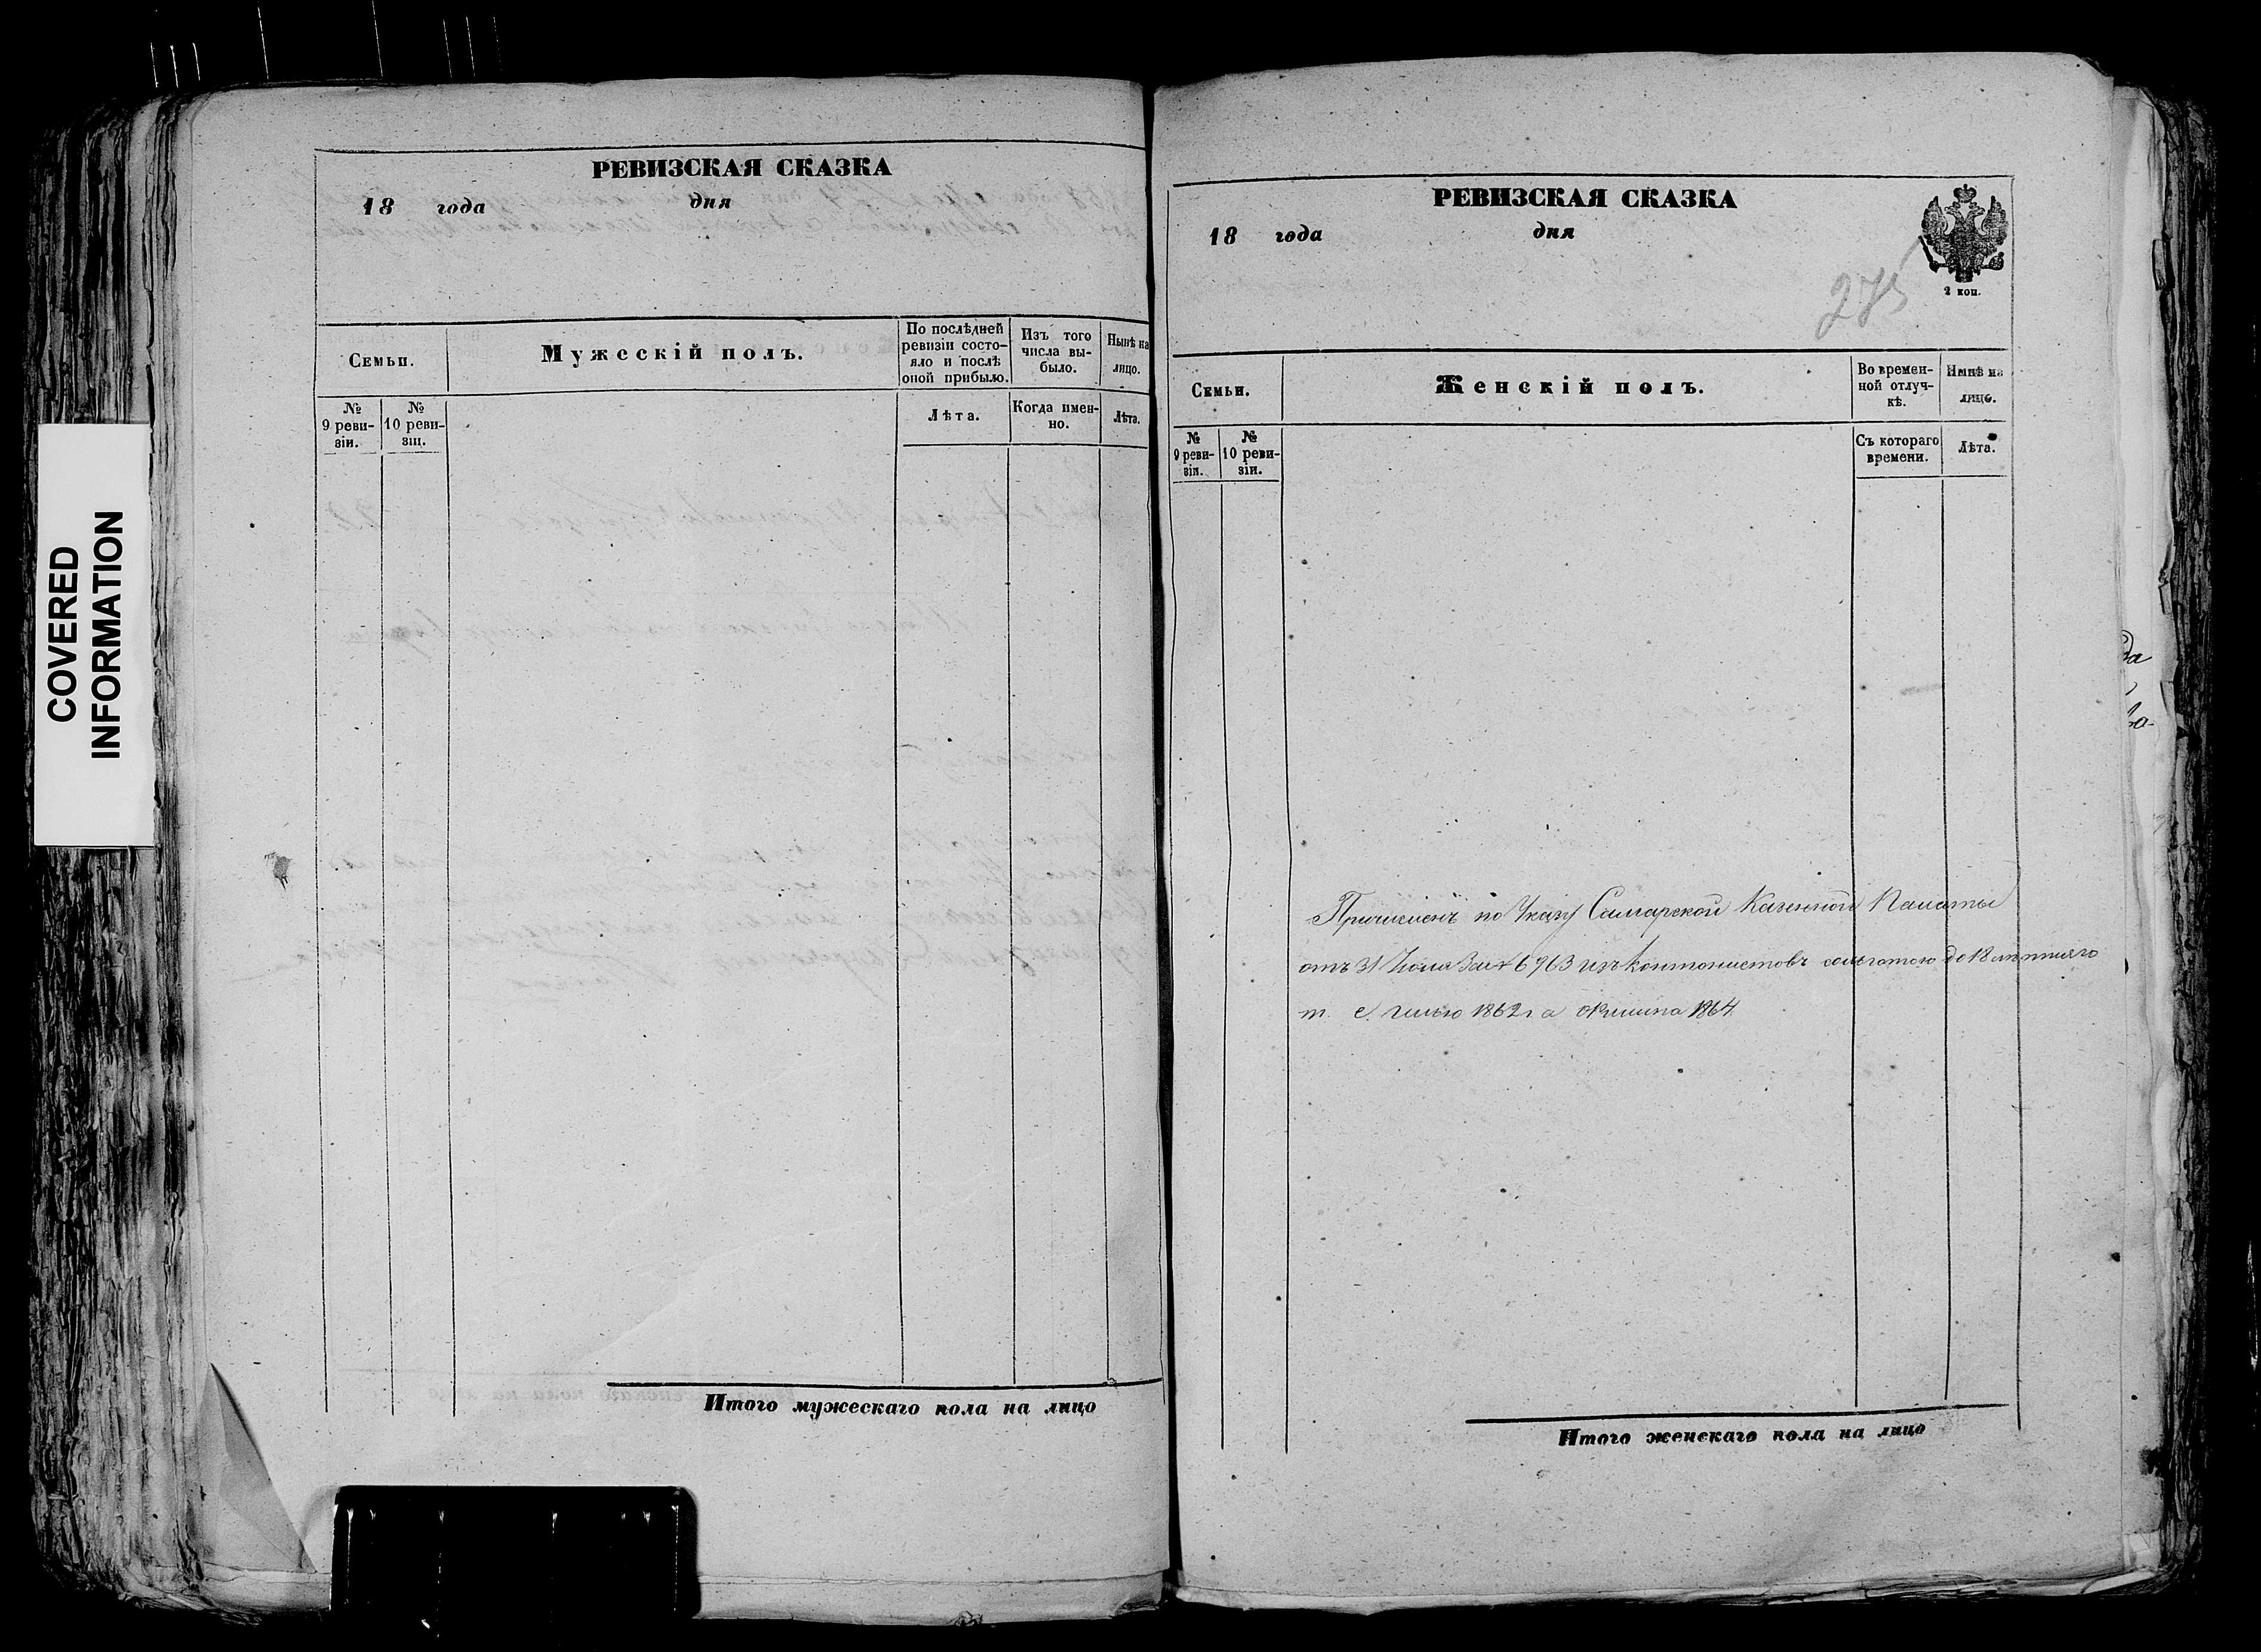 COVERED
INFORMATION
РЕВИЗСКАЯ СКАЗКА
18 года дня
Семьи.
Мужескій полъ.
По послѣдней
ревизіи состо-
яло и послѣ
оной прибыло.
Изъ того
числа вы-
было.
Нынѣ на
лицо.
№
9 реви-
зіи.
№
10 реви-
зіи.
Лѣта.
Когда имен-
но.
Лѣта.
Итого мужескаго пола на лицо
РЕВИЗСКАЯ СКАЗКА
18 года дня
275
2 коп.
Семьи.
Женскій полъ.
Во времен-
ной отлуч-
кѣ.
Нынѣ на
лицо.
№
9 реви-
зіи.
№
10 реви-
зіи.
Съ котораго
времени.
Лѣта.
Причисленъ по Указу Самарской Казенной Палаты
отъ 31 за № 6963 изъ кантонистовъ до 18 лѣтняго
1862 г а 1864
Итого женскаго пола на лицо